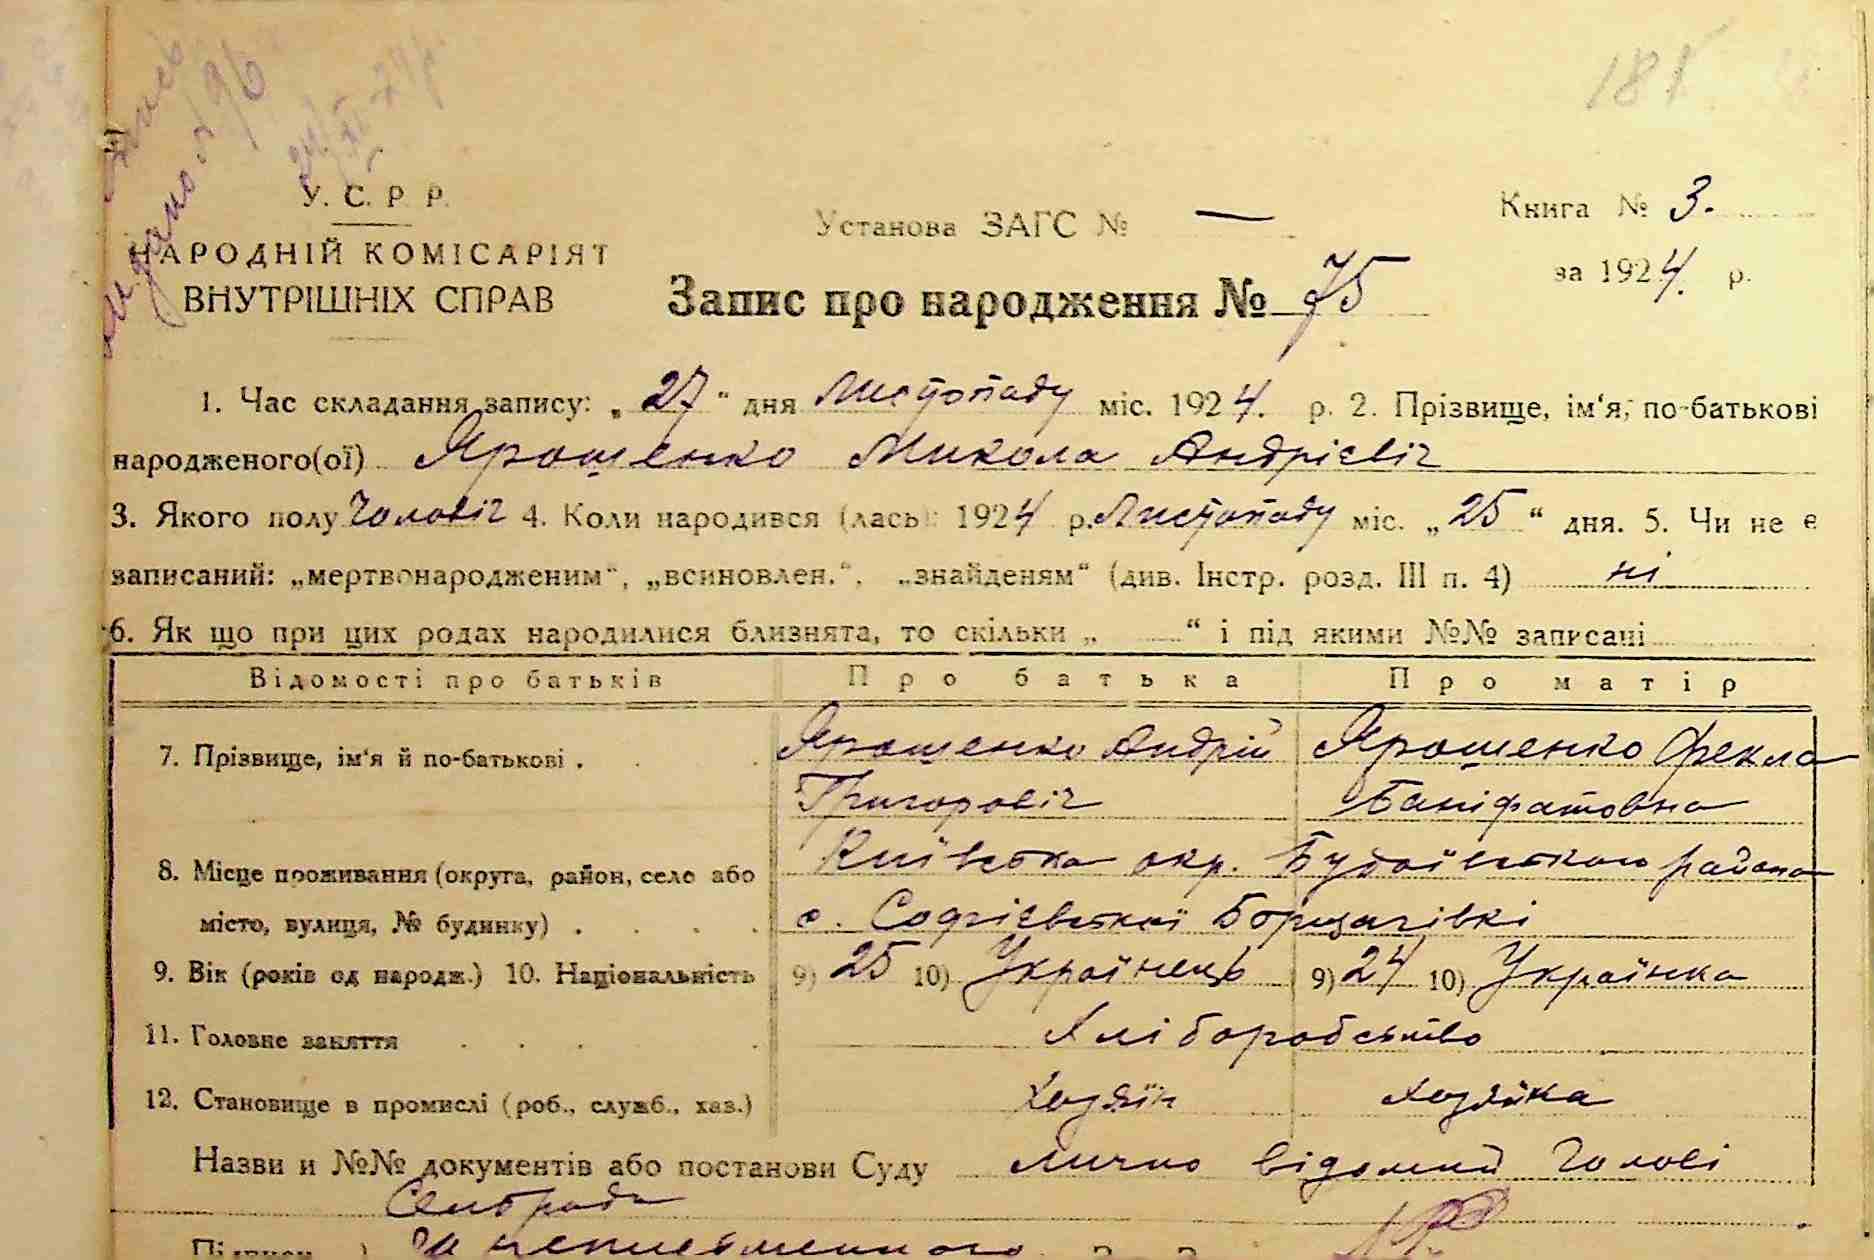 181
У. С. Р. Р.
НАРОДНІЙ КОМІСАРІЯТ
ВНУТРІШНІХ СПРАВ
Установа ЗАГС № —
Книга № 3.
за 1924. р.
Запис про народження № 75
1. Час складання запису: „27“ дня Листопаду міс. 1924. р. 2. Прізвище, ім‘я, по-батькові
народженого(ої) Ярошенко Микола Андрієвіч
3. Якого полу Чоловіч 4. Коли народився (лась) 1924 р. Листопаду міс. „25“ дня. 5. Чи не є
записаний: „мертвонародженим“, „всиновлен.“, „знайденям“ (див. Інстр. розд. III п. 4) ні
6. Як що при цих родах народилися близнята, то скільки „ “ і під якими №№ записані
Відомості про батьків Про батька Про матір
7. Прізвище, ім‘я й по-батькові . Ярошенко Андрій Ярошенко Фекла
Григоровіч Баніфатовна
8. Місце проживання (округа, район, село або Київська окр. Будаївського района
місто, вулиця, № будинку) . с. Софієвської Борщагівкі
9. Вік (років од народж.) 10. Національність 9) 25 10) Українець 9) 24 10) Українка
11. Головне заняття Хліборобство
12. Становище в промислі (роб., служб., хаз.) Хозяїн Хозяйка
Назви и №№ документів або постанови Суду лично відомий Голові
Сельрада